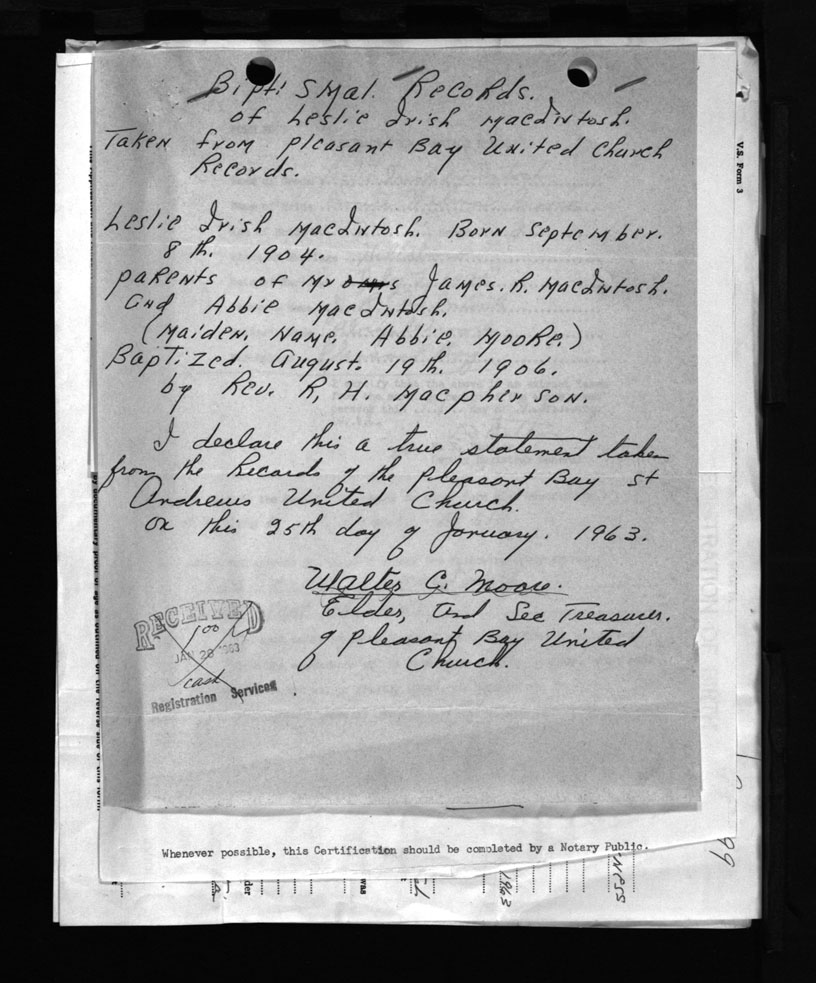 Biptismal. Records.
of Leslie Irish MacIntosh.
Taken from Pleasant Bay United Church
Records.
Leslie Irish MacIntosh. Born September.
8th. 1904.
parents of Mr s James. R. MacIntosh.
and Abbie MacIntosh.
(Maiden. Name. Abbie. Moore.)
Baptized. August. 19th. 1906.
by Rev. R, H. Macpherson.
I declare this a true statement taken
from the Records of the Pleasant Bay St
Andrews United Church.
on this 25th day of January. 1963.
Walter C. Moore.
Elder, and Sec Treasurer.
of Pleasant Bay United
Church.
RECEIVED
1.00
JAN 28 1963
cash
Registration Services
Whenever possible, this Certification should be completed by a Notary Public.
V.S. Form 3
1963
was
99